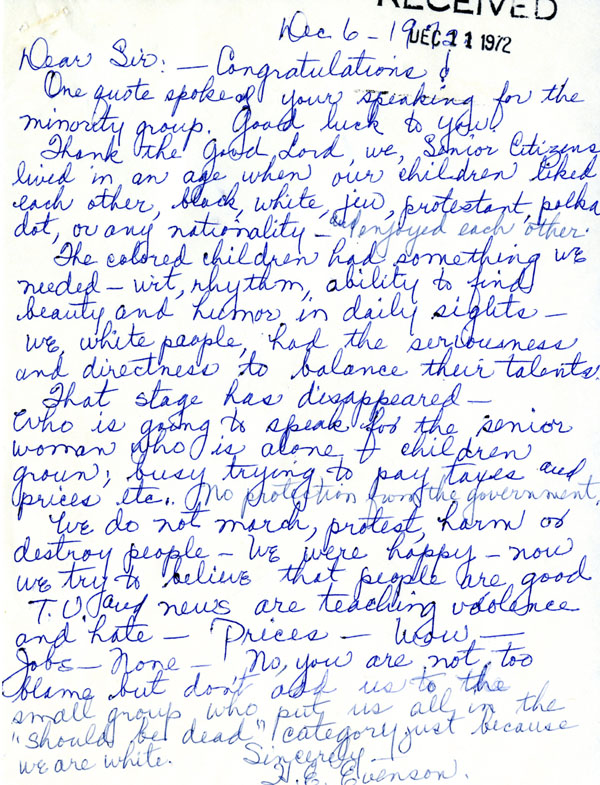 RECEIVED
DEC 11 1972
Dec 6 - 1972
Dear Sir: — Congratulations &
One quote spoke of your speaking for the
minority group. Good luck to you.
Thank the Good Lord, we, Senior Citizens
lived in an age when our children liked
each other, black, white, jew, protestant, polka
dot, or any nationality - and enjoyed each other.
The colored children had something we
needed - wit, rhythm, ability to find
beauty and humor in daily sights -
we, white people, had the seriousness
and directness to balance their talents.
That stage has disappeared -
Who is going to speak for the senior
woman who is alone & children
grown; busy trying to pay taxes and
prices etc. No protection from the government.
We do not march, protest, harm or
destroy people - We were happy - now
we try to believe that people are good
T.V. and news are teaching violence
and hate - Prices - Wow -
Jobs - None - No, you are not too
blame but don't add us to the
small group who put us all in the
"should be dead" category just because
we are white. Sincerely -
H. E. Evenson.